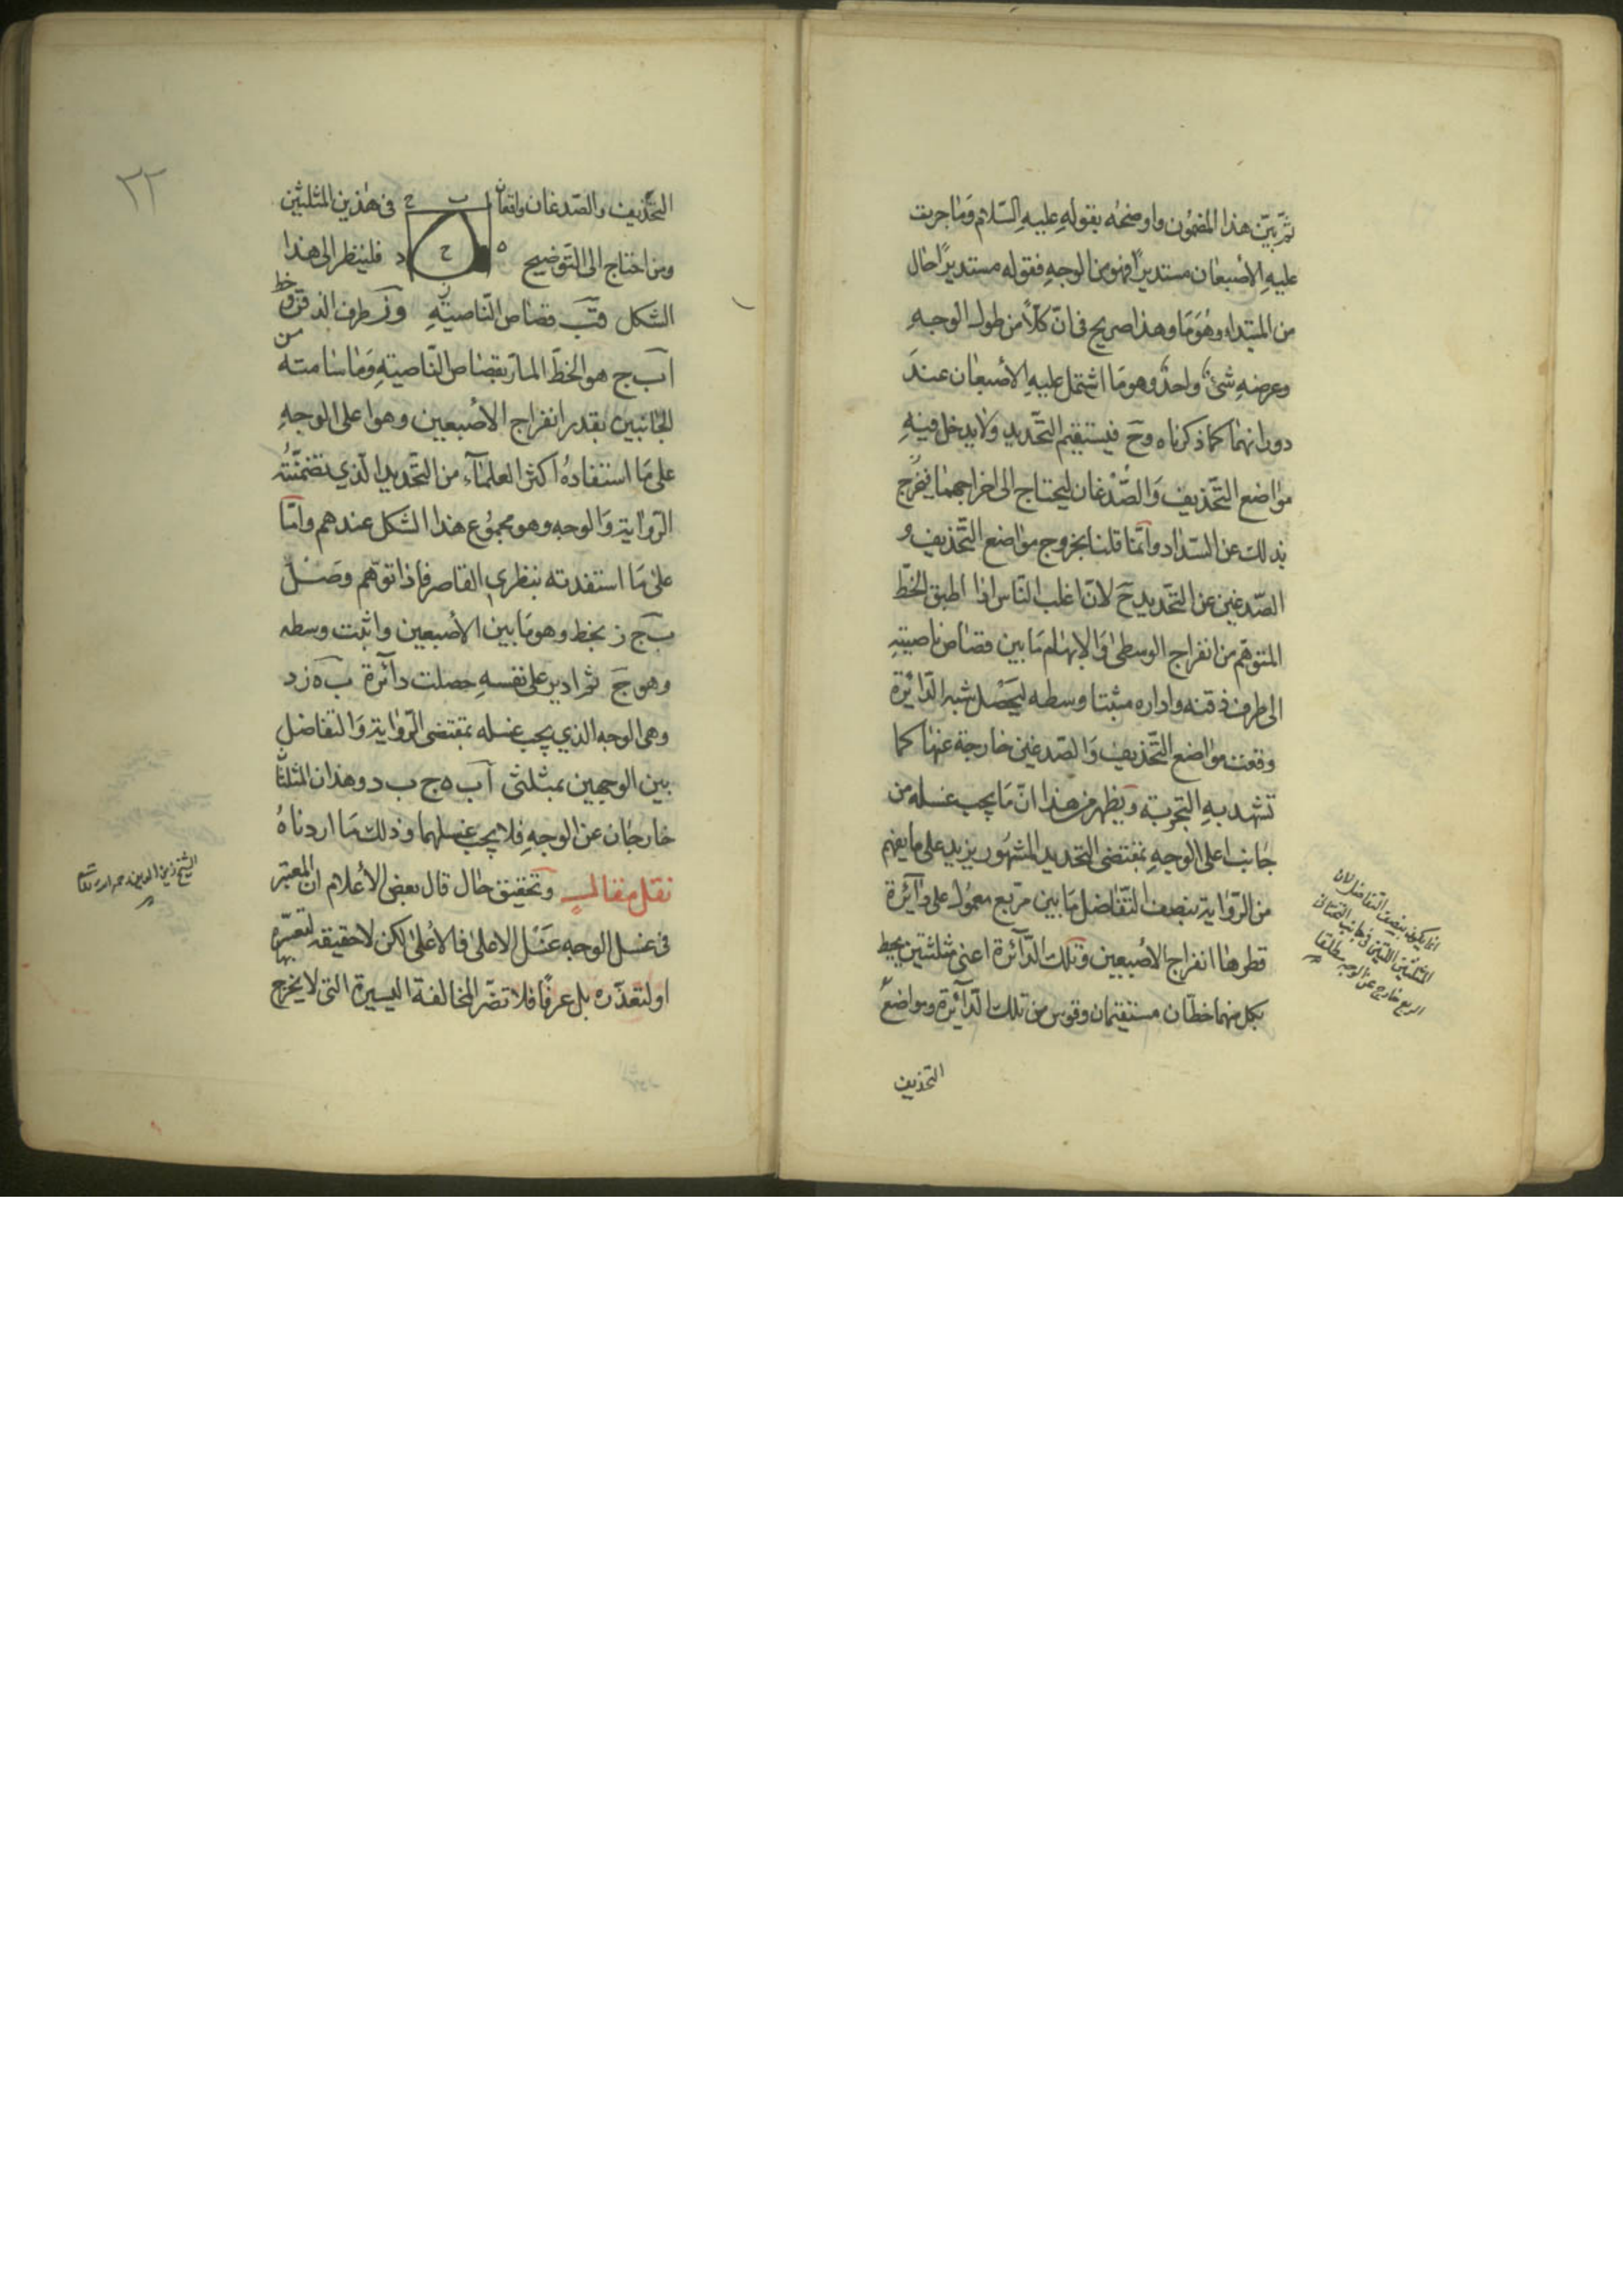 ثم بين هذا المضمون واوضحه بقوله عليه السلام وما جرت
عليه الاصبعان مستديرا فهو من الوجه فقوله مستديرا حال
من المبتداء وهو ما وهذا صريح في ان كلا من طول الوجه
وعرضه شئ واحد وهو ما اشتمل عليه الاصبعان عند
دورانهما كما ذكرناه وح فيستقيم التحديد ولا يدخل فيه
مواضع التحذيف والصدغان ليحتاج الى اخراجهما فيخرج
بذلك عن السداد وانما قلنا بخروج مواضع التحذيف و
الصدغين عن التحديد ح لان اغلب الناس اذا اطبق الخط
المتوهم من انفراج الوسطى والابهام ما بين قصاص ناصيته
الى طرف ذقنه واداره مثبتا وسطه ليحصل شبه الدائرة
وقعت مواضع التحذيف والصدغين خارجة عنها كما
تشهد به التجربة ويظهر من هذا ان ما يجب غسله من
جانب اعلى الوجه بمقتضى التحديد المشهور يزيد على ما يفهم
من الرواية بنصف التفاضل ما بين مربع معمول على دائرة
قطرها انفراج الاصبعين وتلك الدائرة اعني مثلثين يحيط
بكل منهما خطان مستقيمان وقوس من تلك الدائرة ومواضع
التحذيف
انما يكون بنصف التفاضل لان
المثلثين اللذين في جانب التحتاني
خارج عن الوجه مطلقا
٢٢
التحذيف والصدغان واقعان
ا ب ج
في هذين المثلثين
ومن احتاج الى التوضيح
ه ح د
فلينظر الى هذا
ز
الشكل فب قصاص الناصية وز طرف الذقن وخط
ا ب ج هو الخط المار بقصاص الناصية وما سامته من
الجانبين بقدر انفراج الاصبعين وهو اعلى الوجه
على ما استفاده اكثر العلماء من التحديد الذي تضمنته
الرواية والوجه وهو مجموع هذا الشكل عندهم واما
على ما استفدته بنظري القاصر فاذا توهم وصل
ب ح ز بخط وهو ما بين الاصبعين واثبت وسطه
وهو ح ثم ادير على نفسه حصلت دائرة ب ه ز د
وهي الوجه الذي يجب غسله بمقتضى الرواية والتفاضل
بين الوجهين بمثلثي ا ب ه ج ب د وهذان المثلثان
خارجان عن الوجه فلا يجب غسلهما وذلك ما اردناه
نقل مقال وتحقيق حال قال بعض الأعلام ان المعتبر
في غسل الوجه غسل الاعلى فالاعلى لكن لا حقيقة لتعسره
او لتعذره بل عرفا فلا تضر المخالفة اليسيرة التي لا يخرج بها
الشيخ زين الدين